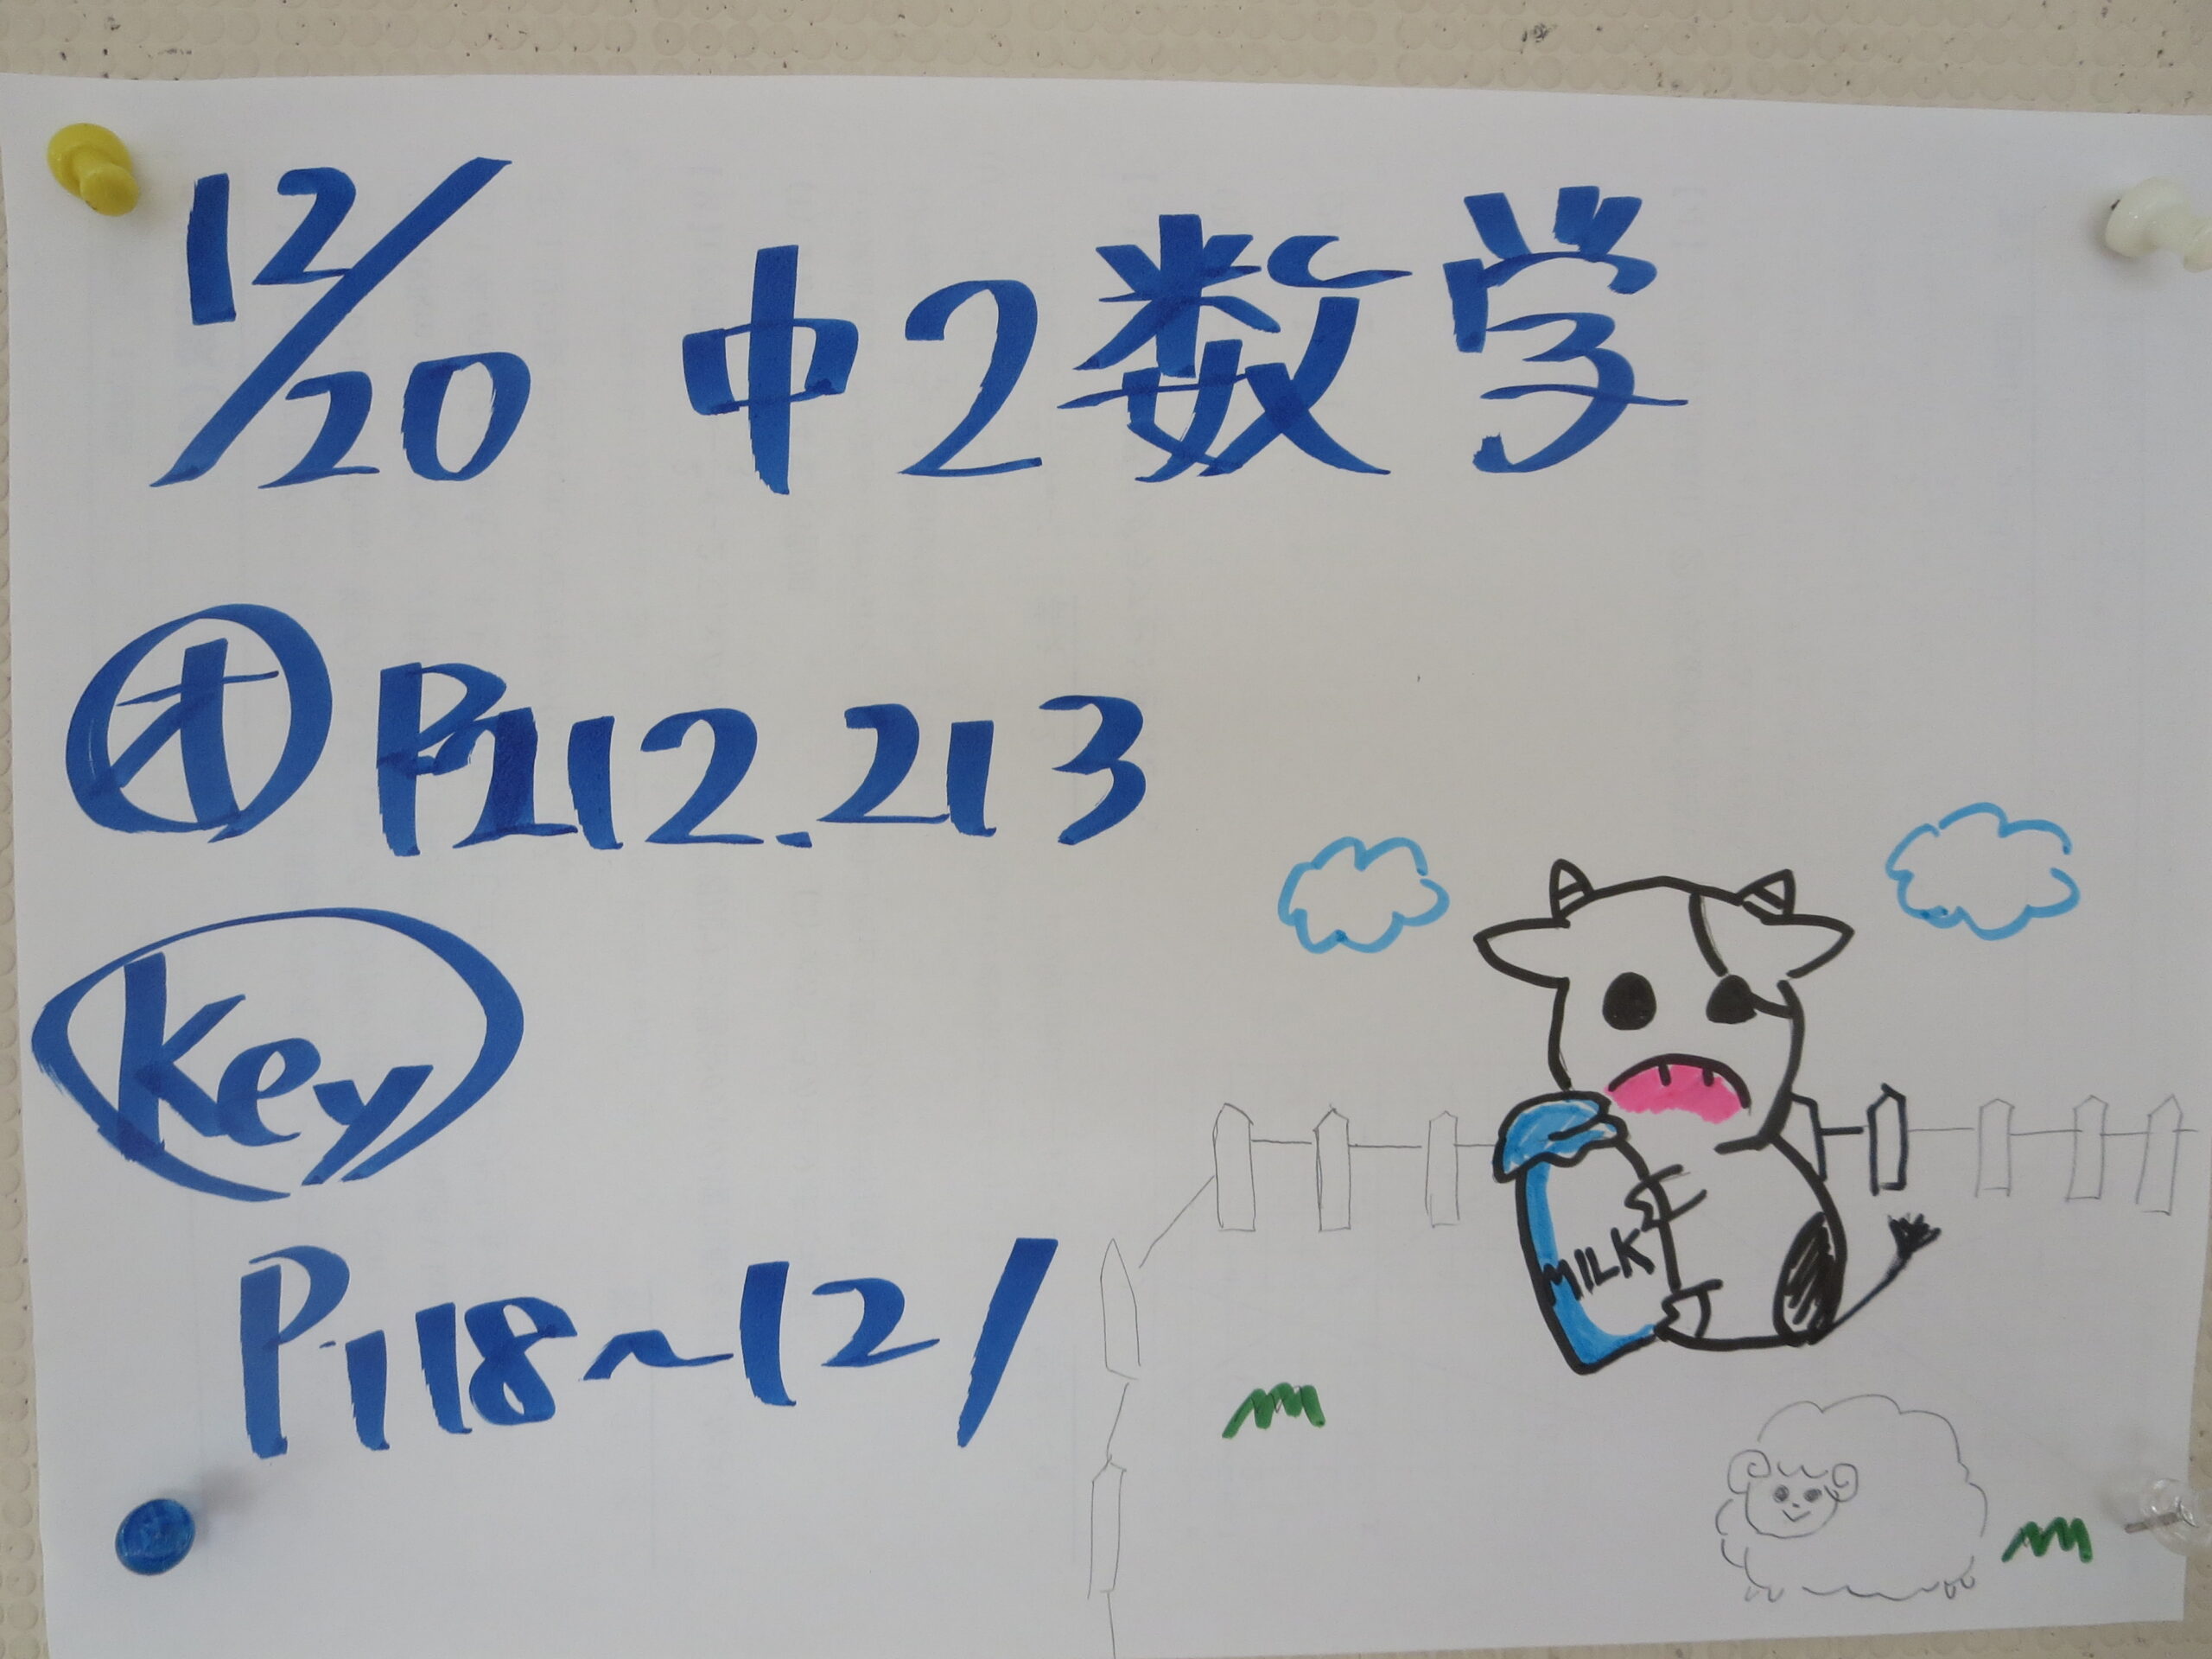 12/20 中2数学
オ P212.213
Key
P.118~121
MILK